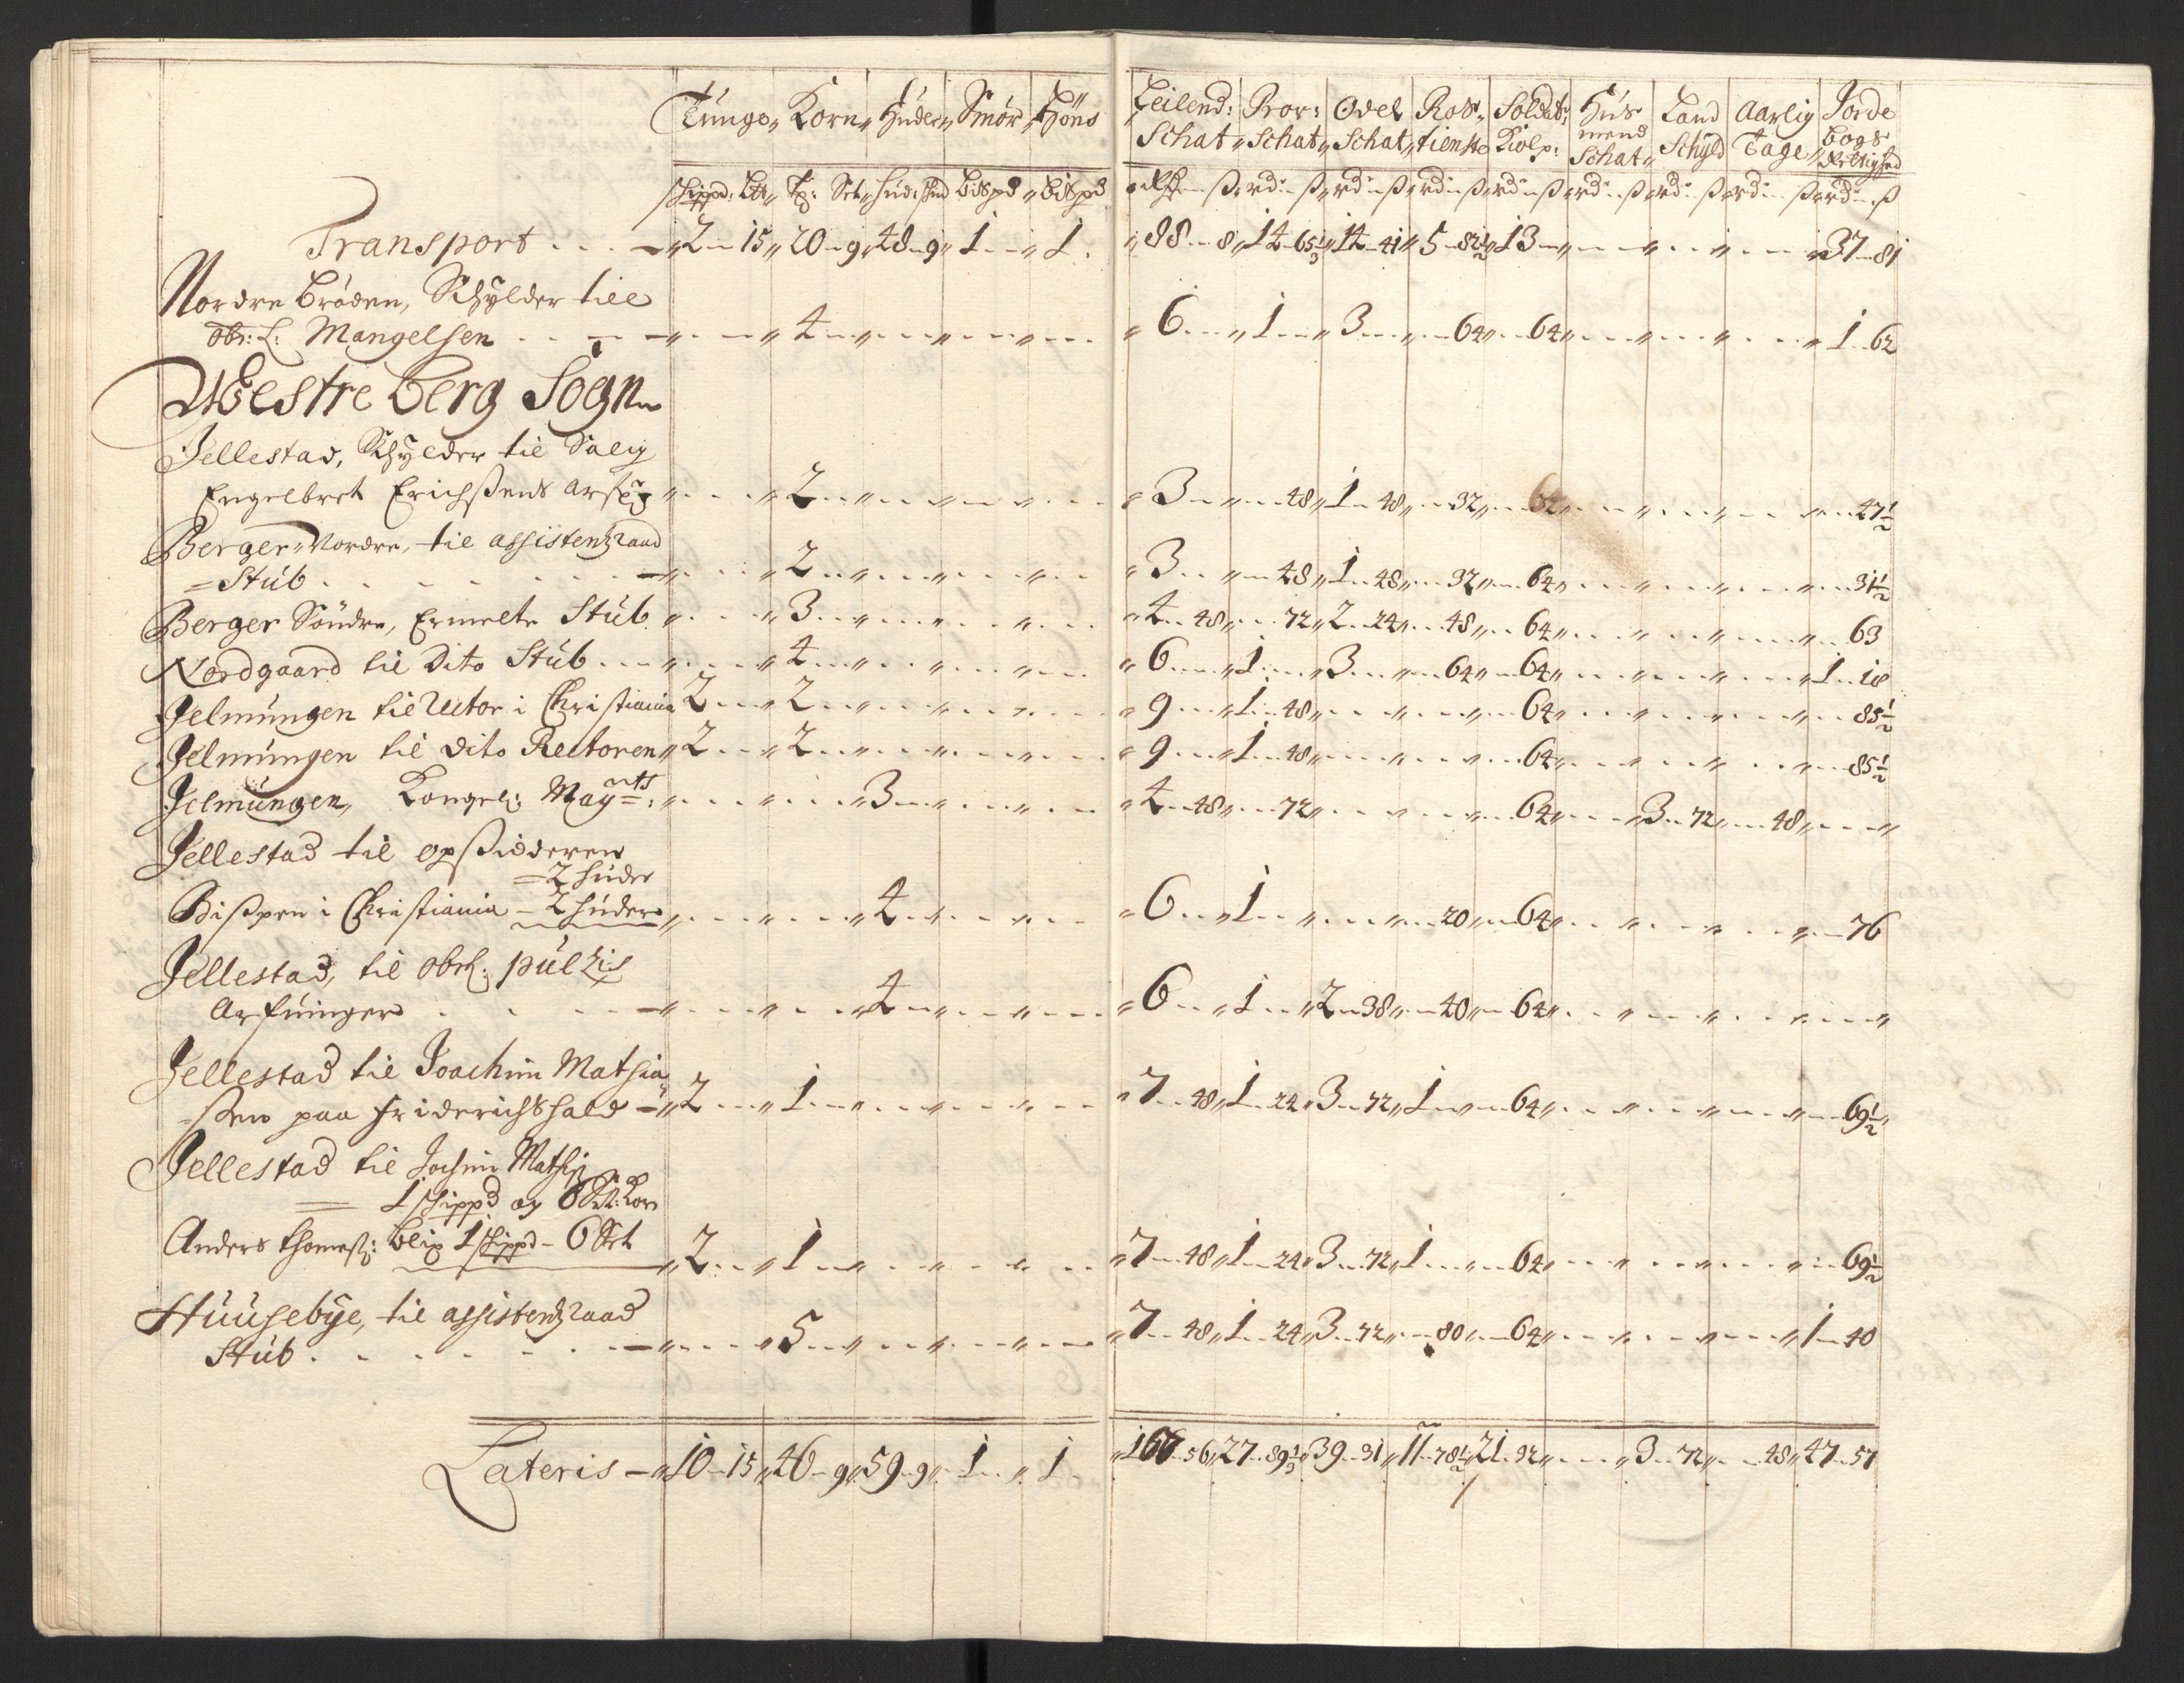 Tunge Korn Huder Smör Höns
Leilend: Prov: Odel Ros Soldat: Hus Land Aarlig Jorde
Schat Schat Schat tienste Kiolp: mend Schat Schyld Tage bogs Rettighed
Transport . . . 2 15 20 9 48 9 1 1 88 8 14 65⅓ 14 41 5 82½ 13 37 81
Nordre Bröden, Schylder till
obr: L: Mangelsen . . . 4 6 1 3 64 64 1 62
Westre Berg Sogn
Jellestad, Schylder til Salig
Engelbret Erichssens arf: 2 3 48 1 48 32 32 47½
Berger Nordre, til assistentzraad
Stub . . . 2 3 48 1 48 32 64 31½
Berger Söndre, Ermelte Stub 3 4 48 72 2 24 48 64 63
Nordgaard til Dito Stub . . . 4 6 1 3 64 64 1 18
Jelmungen til Rector i Christiania 2 2 9 1 48 64 85½
Jelmungen til dito Rectoren 2 2 9 1 48 64 85½
Jelmungen, Kongel: Mayts: 3 4 48 72 64 3 72 48
Jellestad til opsidderen
= 2 huder
Bispen i Christiania – 2 huder 4 6 1 20 64 76
Jellestad, til obrl: pultzis
Arfuinger . . . 4 6 1 2 38 40 64
Jellestad til Joachim Mathia
sen paa Friderichshald 2 1 7 48 1 24 3 72 1 64 69½
Jellestad til Jochim Mathis
1 schippd og 6 Set: Korn
Anders Thomess: Blix 1 schippd – 6 Set 2 1 7 48 1 24 3 72 1 64 69½
Huusebye, til assistentzraad
Stub . . . 5 7 48 1 24 3 72 80 64 1 40
Lateris 10 15 46 9 59 9 1 1 166 56 27 89⅓ 39 31 11 78½ 21 32 3 72 48 47 57